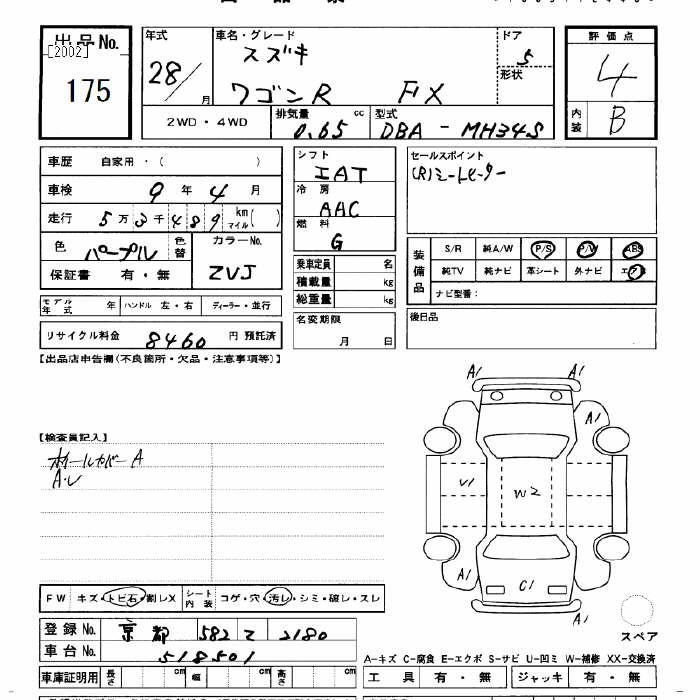 出品 No.
[2002]
175
年式
28/
月
車名・グレード
スズキ
ワゴンR FX
ドア
5
形状
評価点
4
内装
B
2WD・4WD
排気量
0.65
cc
型式
DBA - MH34S
車歴
自家用・( )
車検
9 年 4 月
走行
5万3千489 km マイル( )
色
パープル
色替
カラーNo.
ZVJ
保証書
有・無
シフト
IAT
冷房
AAC
燃料
G
乗車定員
名
積載量
kg
総重量
kg
名変期限
月 日
セールスポイント
(R)シートヒーター
装備品
S/R 純A/W P/S P/W ABS
純TV 純ナビ 革シート 外ナビ
ナビ型番:
後日品
モデル年式
年
ハンドル
左・右
ディーラー・並行
リサイクル料金
8460 円 預託済
【出品店申告欄(不良箇所・欠品・注意事項等)】
【検査員記入】
ホイールカバーA
A.U
A1
A1
A1
V1
W2
A1
C1
A1
スペア
FW
キズ・トビ石・割レX
シート内装
コゲ・穴・汚レ・シミ・破レ・スレ
登録 No.
京都 582 て 2180
車台 No.
518501
車庫証明用
長さ
cm
幅
cm
高さ
cm
A-キズ C-腐食 E-エクボ S-サビ U-凹ミ W-補修 XX-交換済
工具 有・無
ジャッキ 有・無